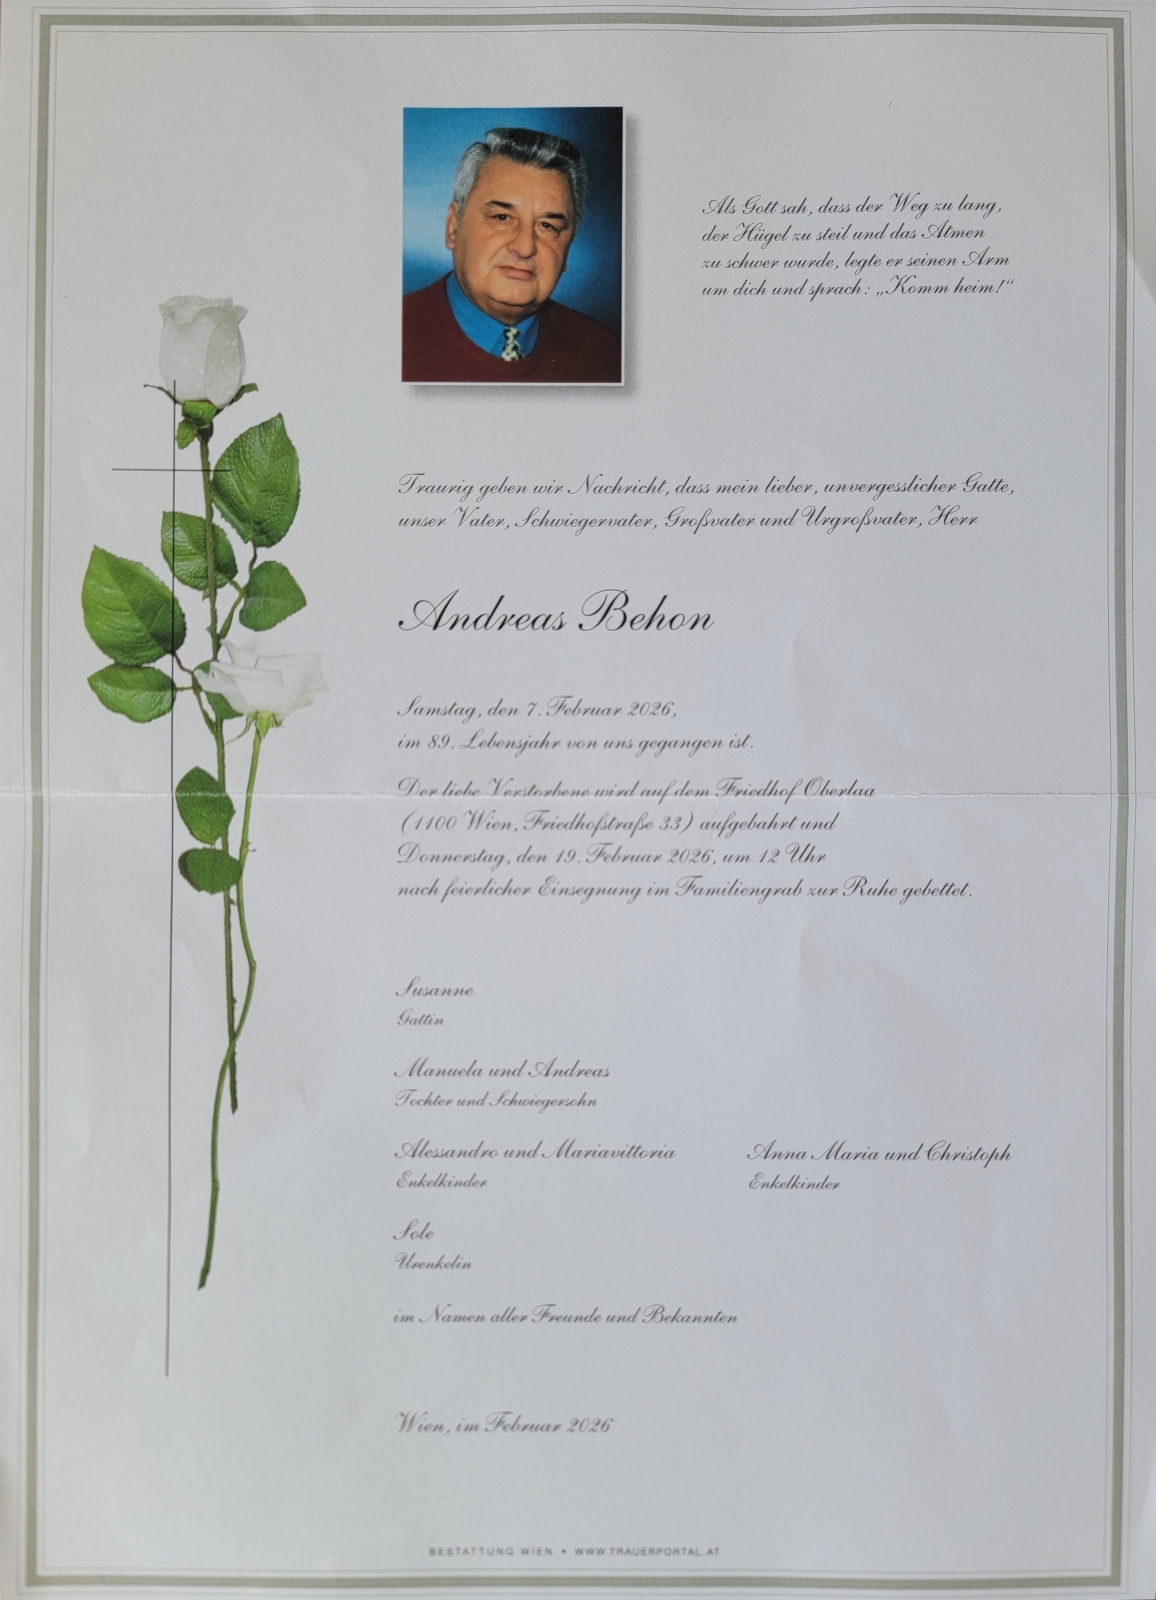 Als Gott sah, dass der Weg zu lang,
der Hügel zu steil und das Atmen
zu schwer wurde, legte er seinen Arm
um dich und sprach: „Komm heim!“
Traurig geben wir Nachricht, dass mein lieber, unvergesslicher Gatte,
unser Vater, Schwiegervater, Großvater und Urgroßvater, Herr
Andreas Behon
Samstag, den 7. Februar 2026,
im 89. Lebensjahr von uns gegangen ist.
Der liebe Verstorbene wird auf dem Friedhof Oberlaa
(1100 Wien, Friedhofstraße 33) aufgebahrt und
Donnerstag, den 19. Februar 2026, um 12 Uhr
nach feierlicher Einsegnung im Familiengrab zur Ruhe gebettet.
Susanne
Gattin
Manuela und Andreas
Tochter und Schwiegersohn
Alessandro und Mariavittoria
Enkelkinder
Anna Maria und Christoph
Enkelkinder
Sole
Urenkelin
im Namen aller Freunde und Bekannten
Wien, im Februar 2026
BESTATTUNG WIEN • WWW.TRAUERPORTAL.AT